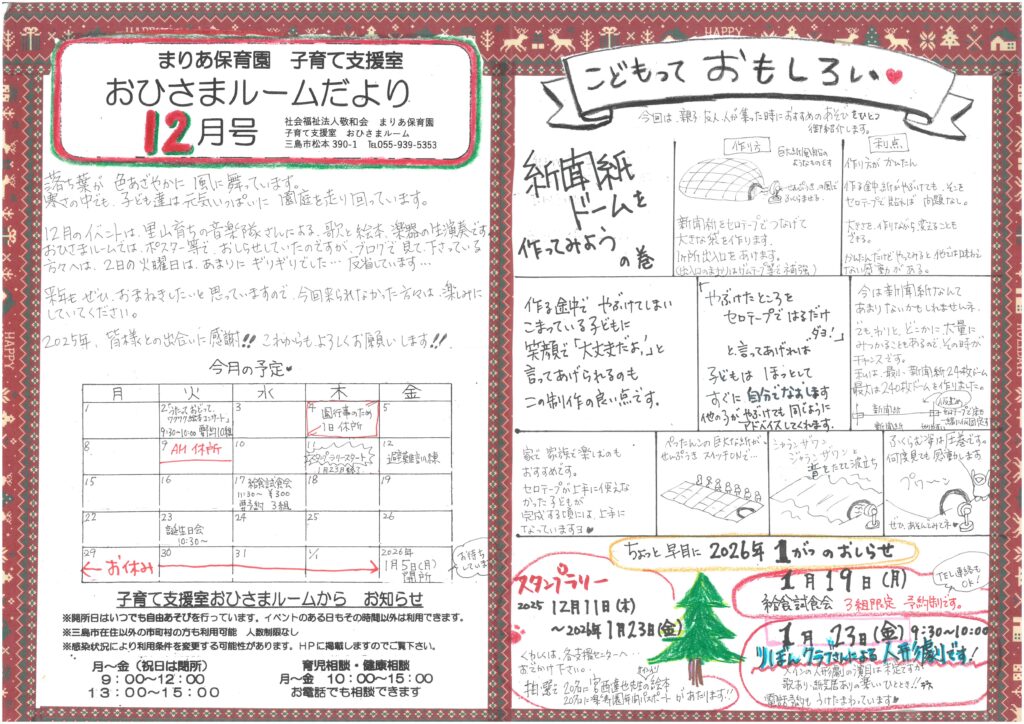 まりあ保育園 子育て支援室
おひさまルームだより
12月号
社会福祉法人敬和会 まりあ保育園
子育て支援室 おひさまルーム
三島市松本390-1 TEL055-939-5353
落ち葉が 色あざやかに 風に舞っています。
寒さの中でも、子ども達は元気いっぱいに 園庭を走り回っています。
12月のイベントは、里山育ちの音楽隊さんによる、歌と絵本、楽器の生演奏です。
おひさまルームでは、ポスター等で、おしらせしていたのですが、ブログで見て下さっている
方々へは、2日の火曜日は、あまりにギリギリでした… 反省しています…
来年もぜひ、おまねきしたいと思っていますので、今回来られなかった方々は、楽しみに
していてください。
2025年、皆様との出合いに感謝!! これからもよろしくお願いします!!
今月の予定
月 火 水 木 金
1
2 うたっておどって、
ワクワク絵本コンサート
9:30~10:00 親子10組
3
4 園行事のため
1日休所
5
8
9 AM休所
10
11 スタンプラリースタート
1月23日終了
12
避難訓練
15
16
17 給食試食会
11:30~ ¥300
要予約 3組
18
19
22
23
誕生日会
10:30~
24
25
26
29
お休み
30
31
1/1
2026年
1月5日(月)
開所
お待ち
しています
子育て支援室おひさまルームから お知らせ
※開所日はいつでも自由あそびを行っています。イベントのある日もその時間以外は利用できます。
※三島市在住以外の市町村の方も利用可能 人数制限なし
※感染状況により利用条件を変更する可能性があります。HPに掲載しますのでご覧下さい。
月~金(祝日は閉所)
9:00~12:00
13:00~15:00
育児相談・健康相談
月~金 10:00~15:00
お電話でも相談できます
こどもって おもしろい
今回は、親子 友人 人が集った時におすすめのあそびをひとつ
御紹介します。
新聞紙
ドームを
作ってみよう
の巻
作り方
巨大紙風船の
ようなものです
せんぷうきの風で
ふくらませる
新聞紙をセロテープでつなげて
大きな袋を作ります。
1ヶ所出入口をあけます。
(出入口のまわりはガムテープ等で補強)
利点
作り方がかんたん
作る途中紙がやぶけても、そこを
セロテープで貼れば 問題なし。
大きさを、作りながら変えることも
できる。
かんたんだけどやってみると 他では味わえ
ない感動がある。
作る途中で やぶけてしまい
こまっている子どもに
笑顔で「大丈夫だよ!」と
言ってあげられるのも
この制作の良い点です。
「やぶけたところを
セロテープではるだけ
ダヨ!」
と言ってあげれば
子どもは ほっとして
すぐに自分でなおします
他の子がやぶけても同じように
アドバイスしてくれます。
今は新聞紙なんて
あまりないかもしれませんネ
でもわりと、どこかに大量に
みつかることもあるのでその時が
チャンスです。
私は、最小 新聞紙24枚ドーム
最大は240枚ドームを作りました。
新聞紙
新聞紙
家で 家族で楽しむのも
おすすめです。
セロテープが上手に使えな
かった子どもが
完成する頃には、上手に
なっていますヨ
ぺったんこの巨大な紙が
せんぷうき スイッチONで…
ジャランザワン
ジャランザワンと
音をたてて波立ち
ふくらむ姿は圧巻です。
何度見ても感動します
プワーン
ぜひ、あそんでみてネ
ちょっと早目に 2026年 1がつのおしらせ
スタンプラリー
2025 12月11日(木)
~2026 1月23日(金)
くわしくは、各支援センターへ…
おでかけ下さい。
抽選で 20名に 宮西達也先生の絵本
20名に楽寿園年間パスポートがあたります!!
1月19日(月)
TEL連絡も
OK!
給食試食会 3組限定 予約制です。
1月23日(金) 9:30~10:00
りぼんクラブさんによる人形劇です!
メインの人形劇の演目は未定ですが
歌あり・読み聞かせありの楽しいひととき!!
電話予約もうけたまわっています
HAPPY
HAPPY
HAPPY
HOLIDAYS